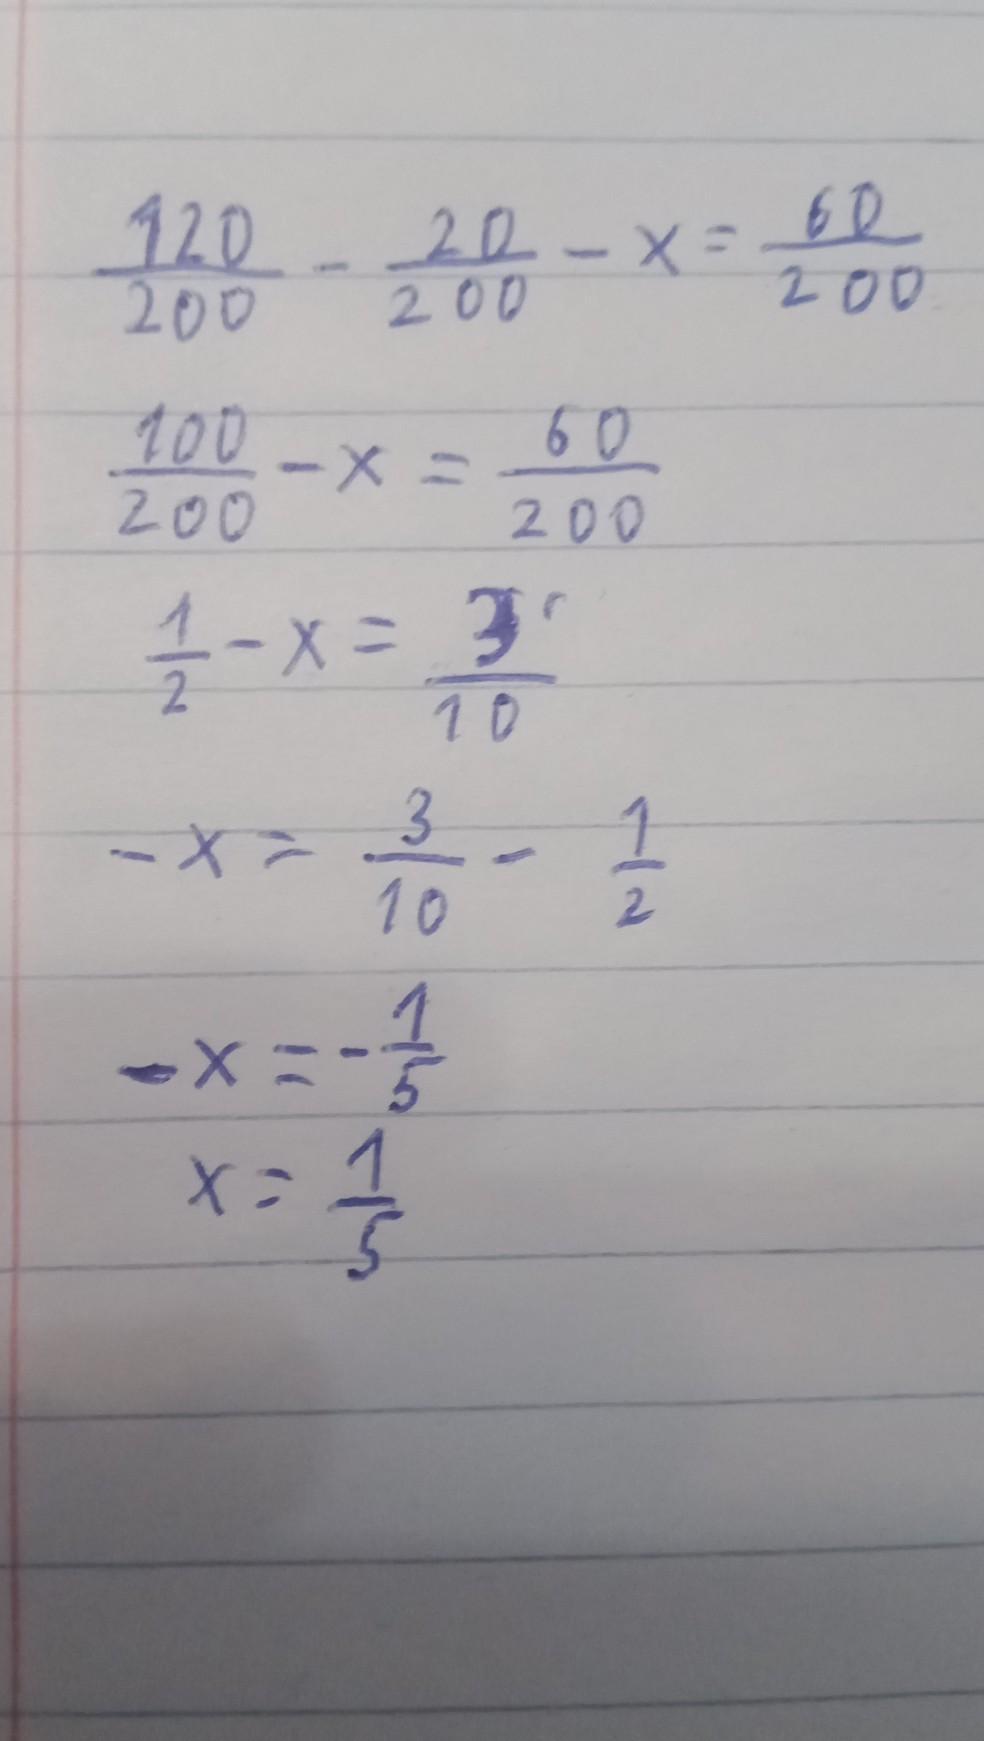 120/200 - 20/200 - x = 60/200
100/200 - x = 60/200
1/2 - x = 3/10
- x = 3/10 - 1/2
- x = - 1/5
x = 1/5